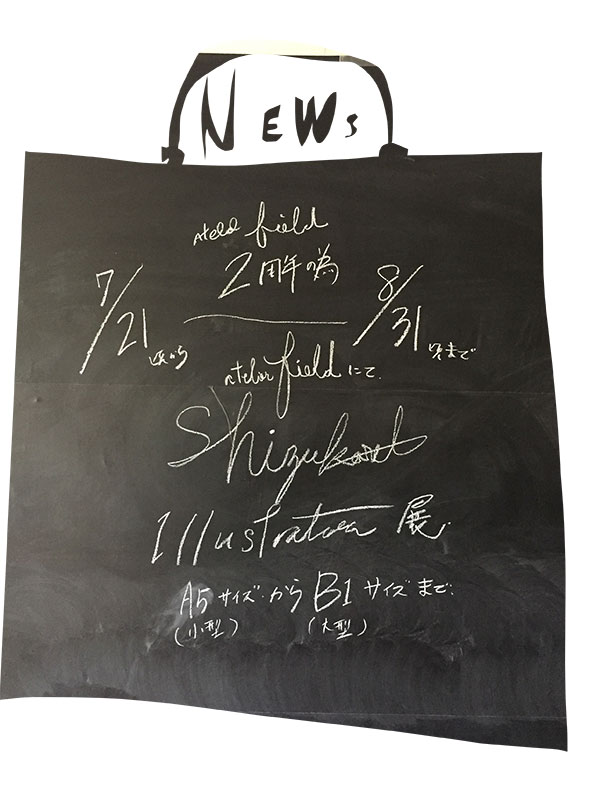 NEWS
Atelier field
2周年の為
7/21 頃から
8/31 頃まで
atelier field にて.
Shizuka
Illustration 展.
A5サイズから B1サイズまで.
(小型) (大型)